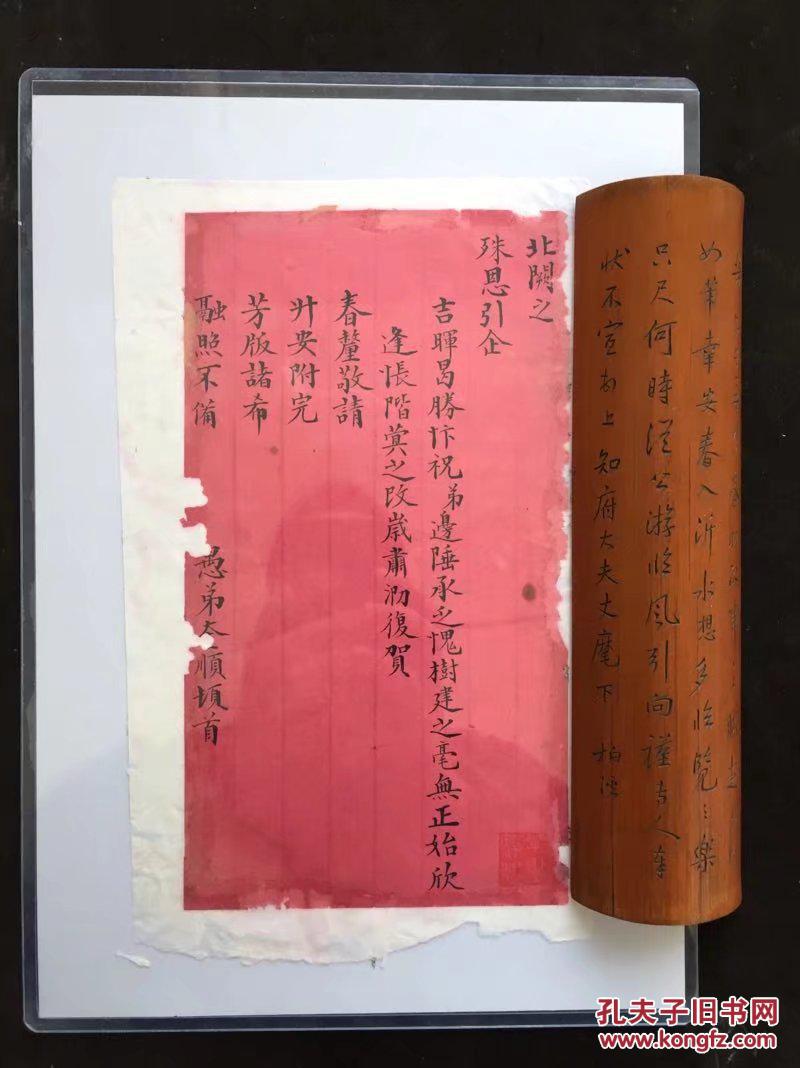 北闕之
殊恩引企
吉暉曷勝忭祝弟邊陲承乏愧樹建之毫無正始欣
逢悵階蓂之改歲肅泐復賀
春釐敬請
升安附完
芳版諸希
融照不備
愚弟太順頓首
如筆幸安春入沂水想多臨覽之樂
只尺何時從公游臨風引向謹吉人奉
狀不宣 上知府大夫丈麾下
孔夫子旧书网
www.kongfz.com